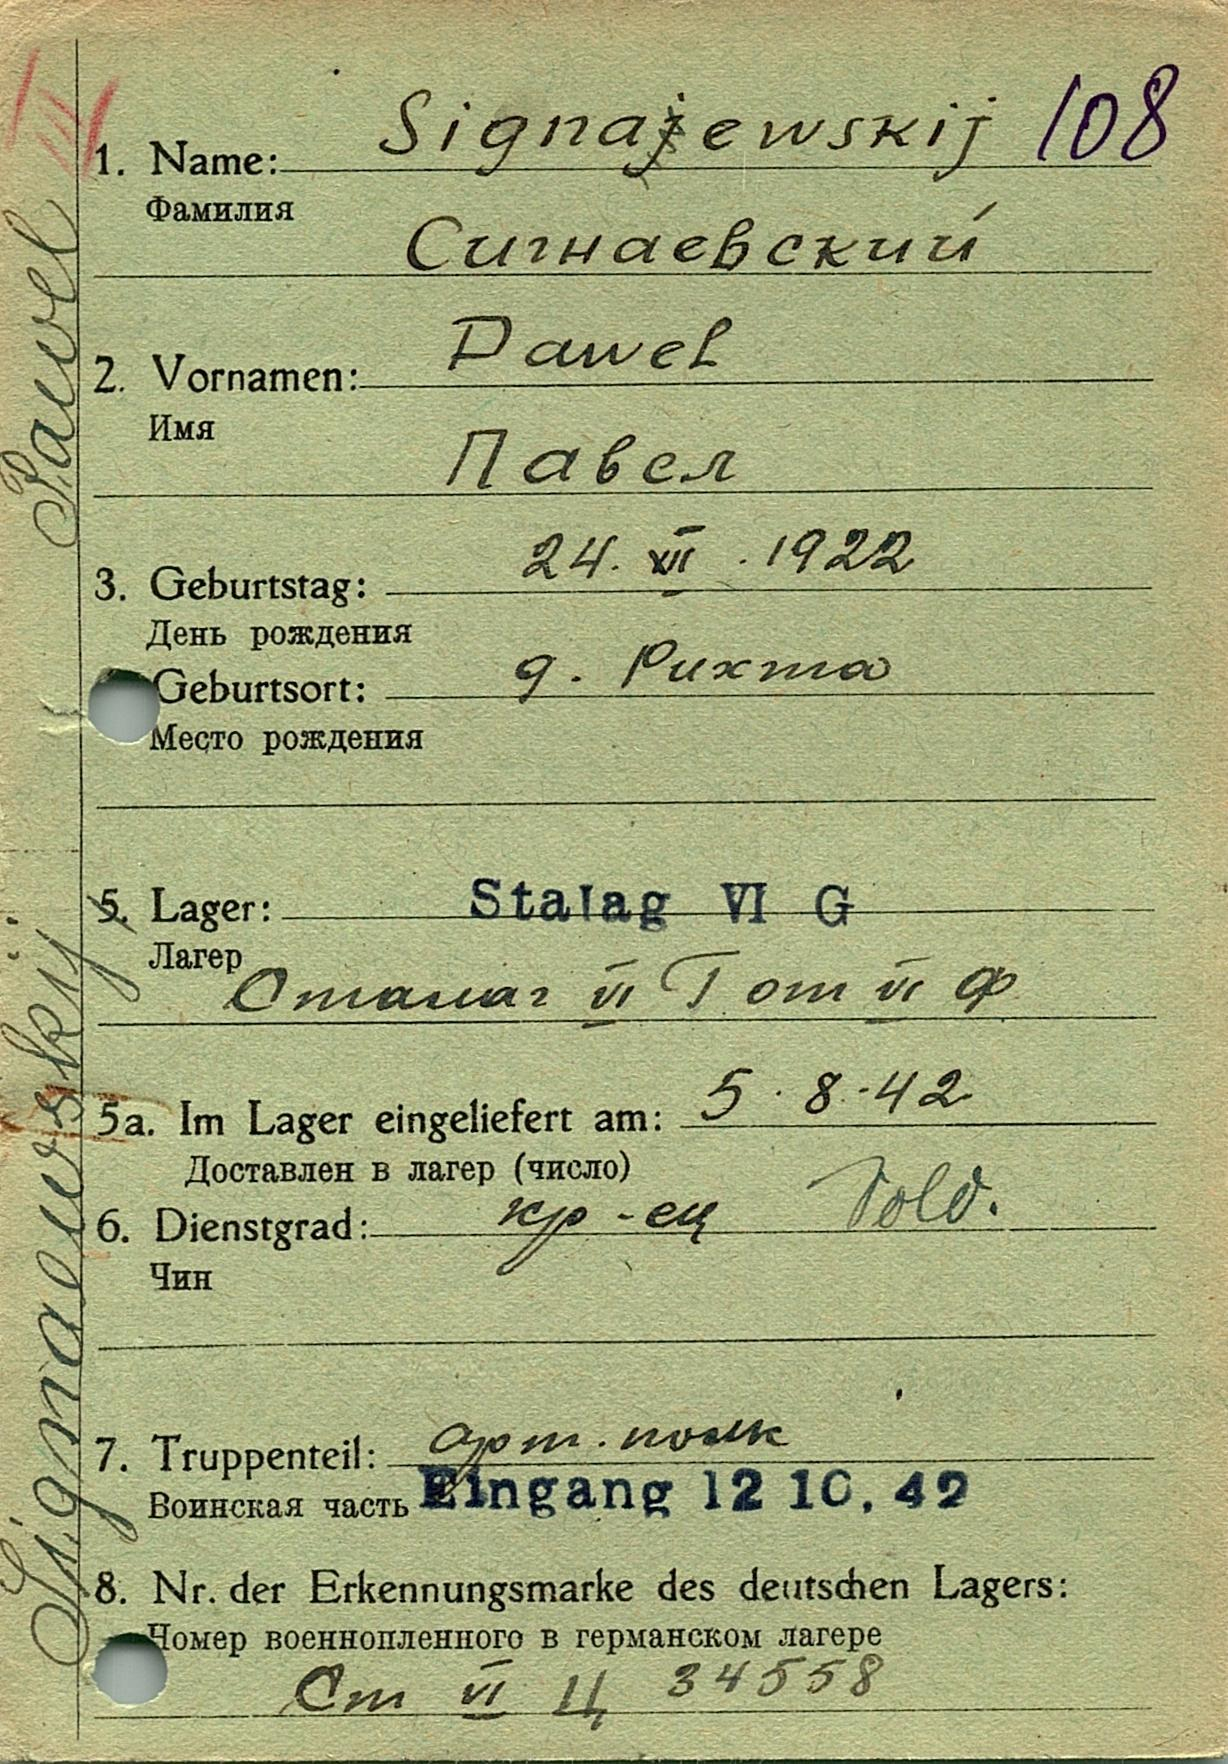 108
1. Name: Signajewskij
Фамилия
Сигнаевский
2. Vornamen: Pawel
Имя
Павел
3. Geburtstag: 24. VII . 1922
День рождения
Geburtsort: д. Рихта
Место рождения
5. Lager: Stalag VI G
Лагер
Сталаг VI Г от VI Ф
5a. Im Lager eingeliefert am: 5 . 8 . 42
Доставлен в лагер (число)
6. Dienstgrad: кр-ец Sold.
Чин
7. Truppenteil: арт. полк
Воинская часть Eingang 12 10. 42
8. Nr. der Erkennungsmarke des deutschen Lagers:
Номер военнопленного в германском лагере
Ст VI Ц 34558
Signaewskij Pawel
III